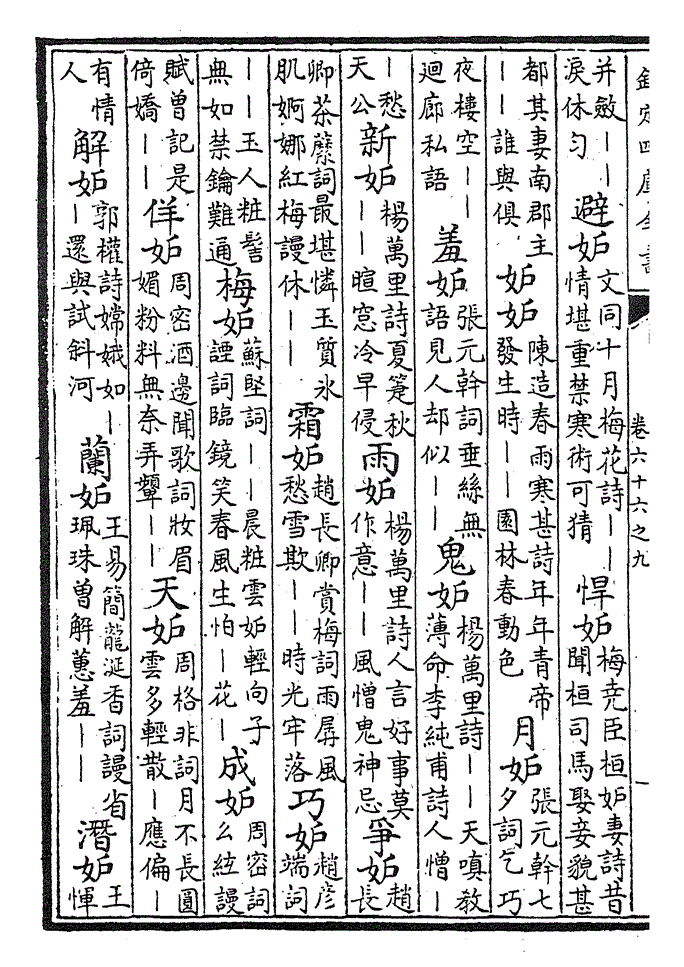 欽定四庫全書 卷六十六之九
并斂——淚休匀 避妒 文同十月梅花詩——情堪重禁寒術可猜 悍妒 梅堯臣桓妒妻詩昔聞桓司馬娶妾貌甚
都其妻南郡主——誰與俱 妒妒 陳造春雨寒甚詩年年青帝發生時——園林春動色 月妒 張元幹七夕詞乞巧
夜樓空——迴廊私語 羞妒 張元幹詞垂絲無語見人却似—— 鬼妒 楊萬里詩——天嗔教薄命李純甫詩人憎—
—愁天公 新妒 楊萬里詩夏簟秋——暄窓冷早侵 雨妒 楊萬里詩人言好事莫作意——風憎鬼神忌 爭妒 趙長
卿荼蘼詞最堪憐玉質氷肌婀娜紅梅謾休—— 霜妒 趙長卿賞梅詞雨孱風愁雪欺——時光牢落 巧妒 趙彦端詞
——玉人粧髻無如禁鑰難通 梅妒 蘇堅詞——晨粧雲妒輕向子諲詞臨鏡笑春風生怕—花— 成妒 周密詞么絃謾
賦曾記是倚嬌—— 佯妒 周密酒邊聞歌詞妝眉媚粉料無奈弄顰—— 天妒 周格非詞月不長圓雲多輕散—應偏—
有情人 解妒 郭權詩嫦娥如——還與試斜河 蘭妒 王易簡龍涎香詞謾省珮珠曾解蕙羞—— 潛妒 王惲